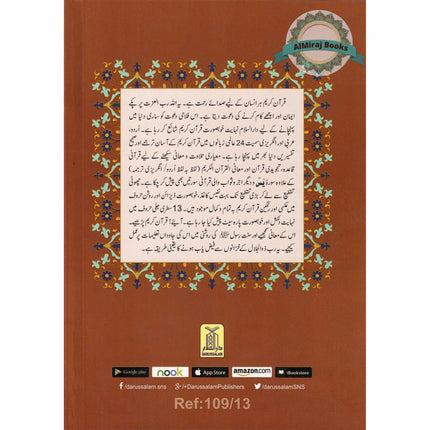 AlMiraj Books
قرآن کریم ہر انسان کے لیے صدائے رحمت ہے۔ یہ اللہ رب العزت پر پکے
ایمان اور اچھے کام کرنے کی دعوت دیتا ہے۔ اس فلاحی دعوت کو ساری دنیا میں
پہنچانے کے لیے دارالسلام نہایت خوبصورت قرآن کریم شائع کر رہا ہے۔ اردو،
عربی اور انگریزی سمیت 24 عالمی زبانوں میں قرآن کریم کے آسان ترجمے اور صحیح
تفسیریں دنیا بھر میں پہنچا رہا ہے۔ معیاری تلاوت و معانی سیکھنے کے لیے قرآنی
قاعدہ، تجویدی قرآن اور معانی القرآن الکریم (لفظ بہ لفظ اردو/انگریزی ترجمہ)
کے علاوہ سورۃ یٰسٓ و دیگر اجر و ثواب والی قرآنی سورتیں بھی پیش کر چکا ہے۔ چھوٹی
تقطیع سے لے کر بڑی تقطیع تک بہت نفیس کاغذ، خوبصورت ڈیزائن اور روشن حروف
میں عکسی اور رنگین قرآن کریم بہ تمام و کمال موجود ہیں۔ 13 سطری جلی حروف میں
نہایت دلکش اور خوبصورت پارہ سیٹ پیش کیا جا رہا ہے۔ آیئے! قرآن کریم پڑھیے۔
اس کے معانی سیکھیے اور سنت رسول ﷺ کی روشنی میں اس کی جاوداں تعلیمات پر عمل
کیجیے۔ یہ رب ذوالجلال کے خزانوں سے فیض یاب ہونے کا یقینی طریقہ ہے۔
دارالسلام
DARUSSALAM
Google play nook App Store amazon.com iBookstore
/darussalam.sns /+DarussalamPublishers /DarussalamSNS
Ref:109/13